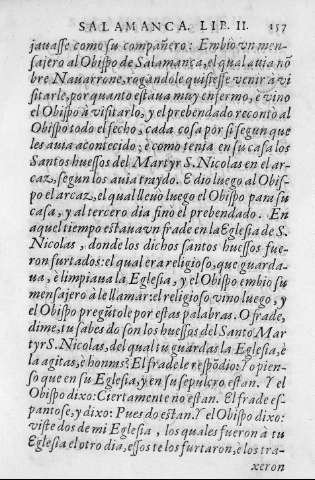 SALAMANCA. LIB. II. 157
jauasse como su compañero: Embio vn men-
sajero al Obispo de Salamanca, el qual auia nõ
bre Nauarrone, rogandole quisiesse venir à vi
sitarle, por quanto estaua muy enfermo, è vino
el Obispo à visitarlo, y el prebendado recontò al
Obispo todo el fecho, cada cosa por si segun que
les auia acontecido, è como tenia en su casa los
Santos huessos del Martyr S. Nicolas en el ar-
caz, segun los auia traydo. E dio luego al Obis-
po el arcaz, el qual lleuò luego el Obispo para su
casa, y al tercero dia finò el prebendado. En
aquel tiempo estaua vn frade en la Eglesia de S.
Nicolas, donde los dichos santos huessos fue-
ron furtados: el qual era religioso, que guarda-
ua, è limpiaua la Eglesia, y el Obispo embio su
mensajero à le llamar: el religioso vino luego, y
el Obispo preguntòle por estas palabras. O frade,
dime, tu sabes do son los huessos del Santo Mar
tyr S. Nicolas, del qual tu guardas la Eglesia, è
la agitas, è honras? El frade le respõdio: Yo pien-
so que en su Eglesia, y en su sepulcro estan. Y el
Obispo dixo: Ciertamente no estan. El frade es-
pantose, y dixo: Pues do estan. Y el Obispo dixo:
viste dos de mi Eglesia, los quales fueron à tu
Eglesia el otro dia, essos te los furtaron, è los tra-
xeron